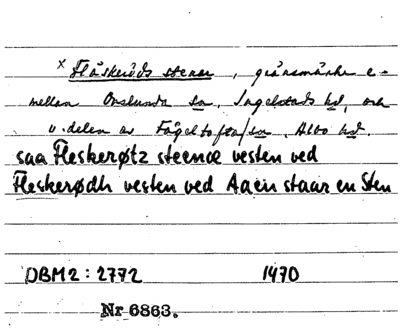 x Fläskeröds stenar, gränsmärke e-
mellan Onslunda sn, Ingelstads hd, och
v. delen av Fågeltofta/sn, Albo hd.
saa Fleskerøtz steenæ vesten ved
Fleskerødh vesten ved Aaen staar en Sten
DBM2: 2772 1470
Nr 6863.